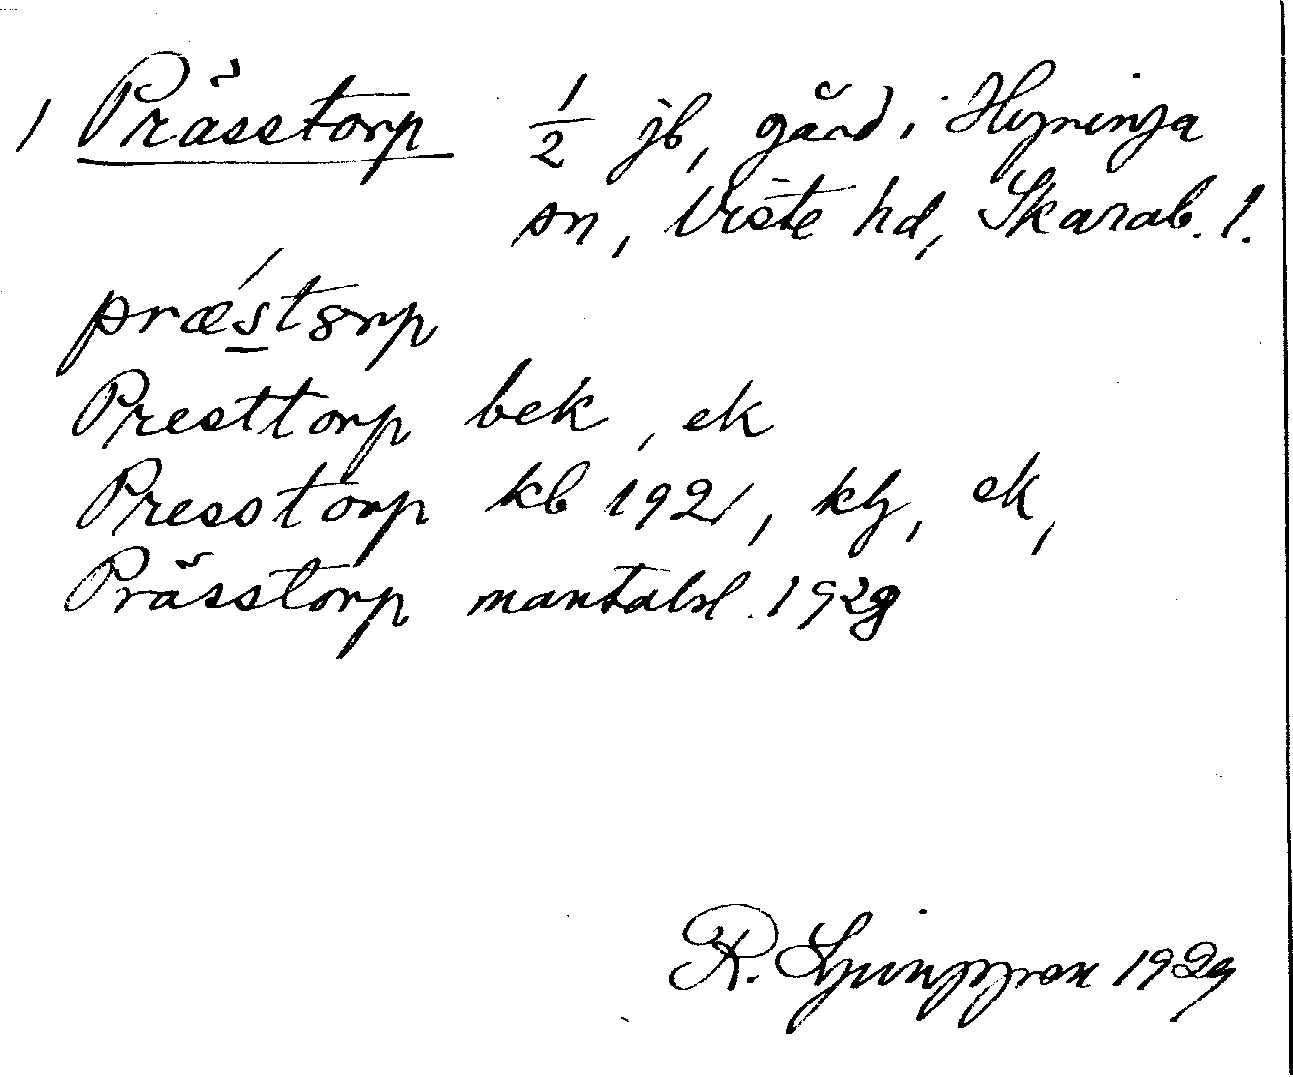 1 Prässtorp 1/2 jb, gård i Hyringa
sn, Viste hd, Skarab. l.
præ´stɔrp
Presttorp bek, ek
Presstorp kb 1921, kg, ek,
Prässtorp mantalsl. 1929
R. Ljunggren 1929